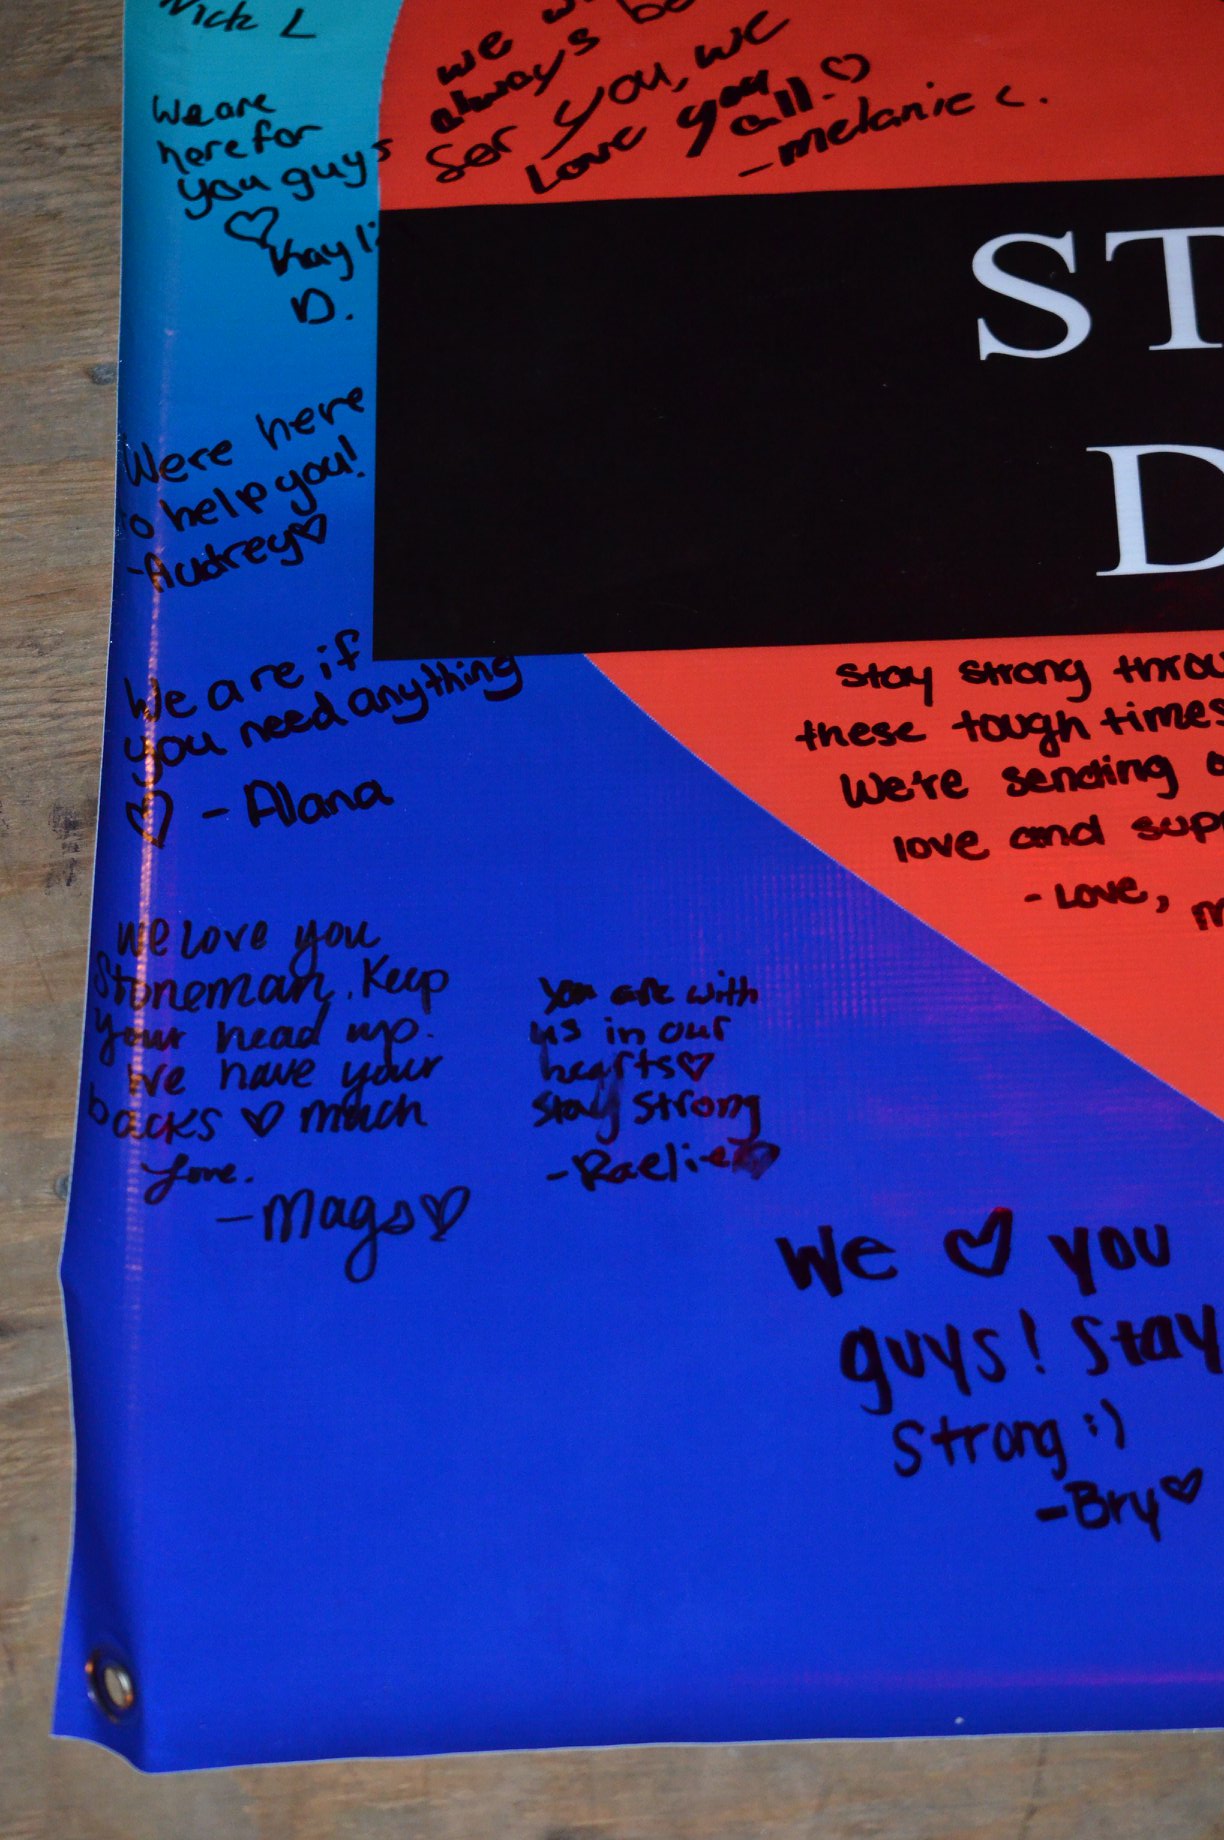 Nick L
we
always be
for you, we
Love you
all! ♡
-melanie c.
We are
here for
you guys
♡
D.
ST
D
Were here
to help you!
-Audrey♡
We are if
you need anything
♡ - Alana
Stay strong throu
these tough times
We're sending
love and supp
- Love,
we love you
Stoneman. Keep
your head up.
We have your
backs ♡ much
love.
-Mags♡
You are with
us in our
hearts♡
Stay Strong
-Raelie♡
We ♡ you
guys! Stay
Strong :)
-Bry♡